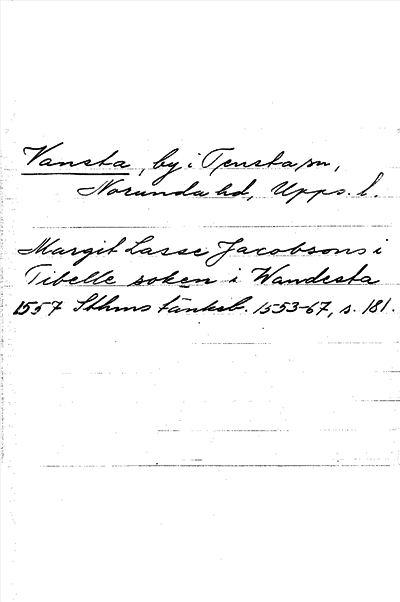 Vansta, by i Tensta sn,
Norunda hd, Upps. l.
Margit Lasse Jacobsons i
Tibelle soken i Wandesta
1557 Sthms tänkeb. 1553-67, s. 181.